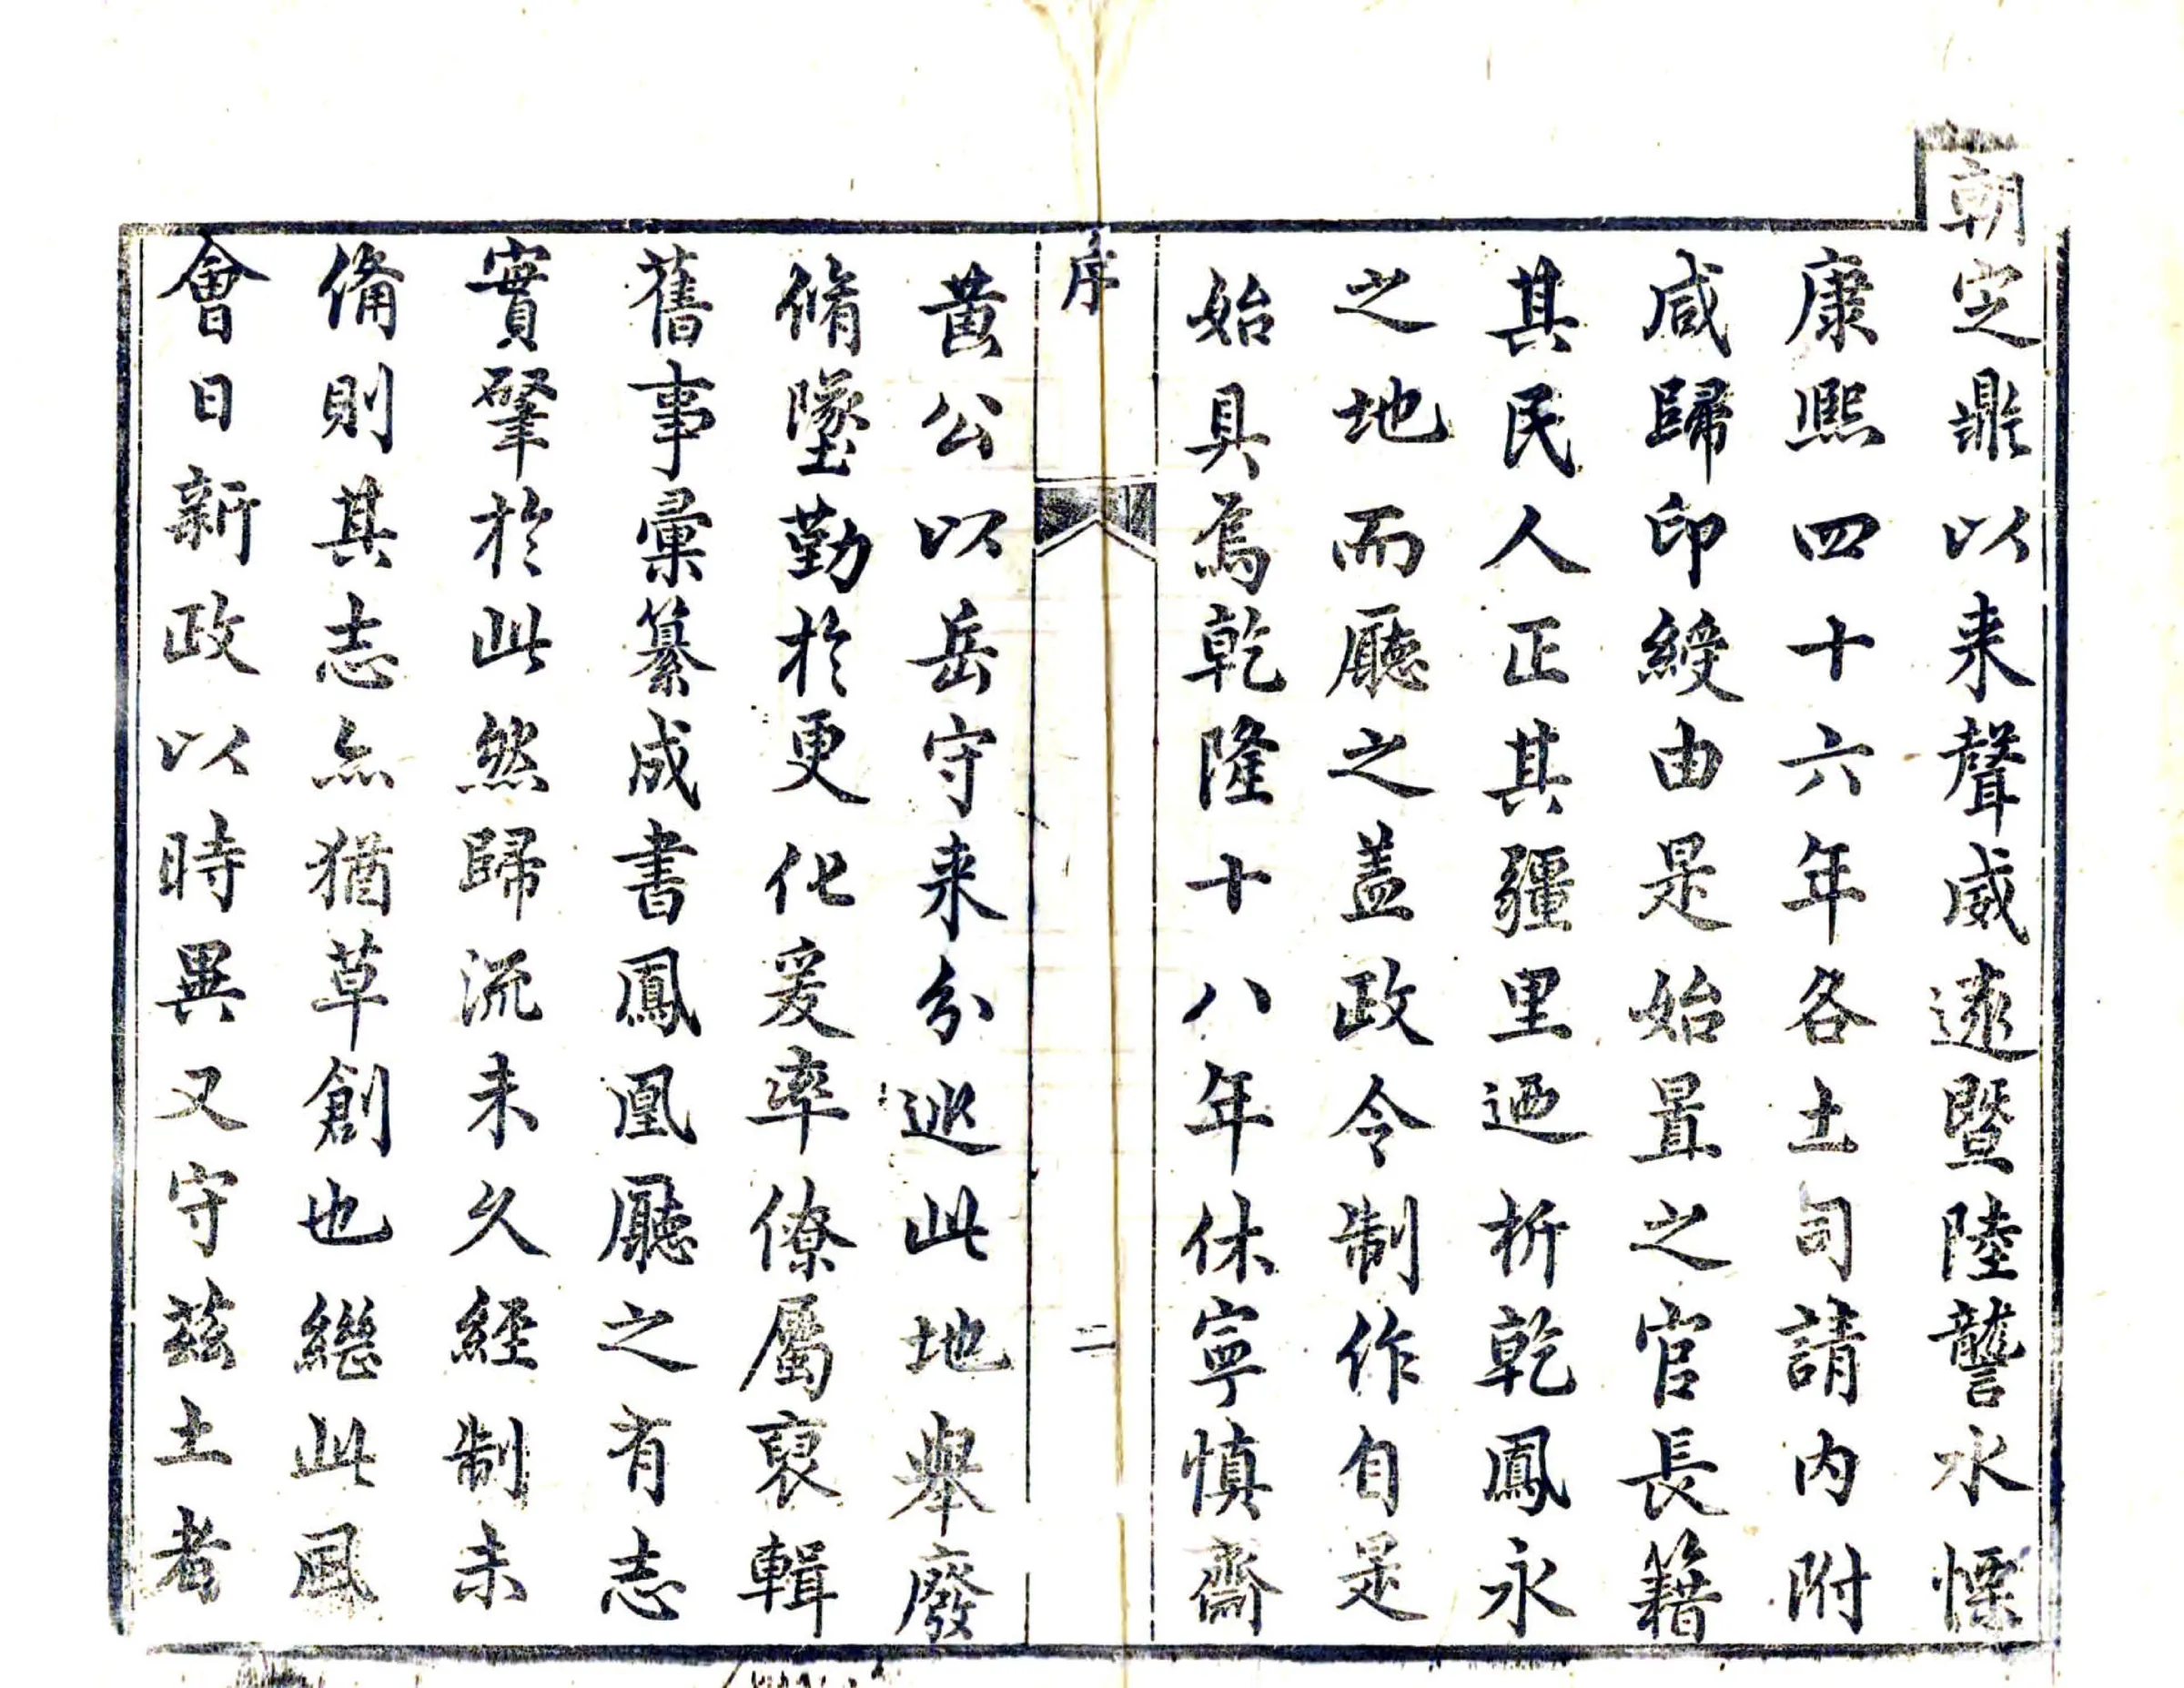 朝定鼎以来聲威遠暨陸讋水慄
康熙四十六年各土司請内附
咸歸印綬由是始置之官長籍
其民人正其疆里迺析乾鳳永
之地而廳之盖政令制作自是
始具焉乾隆十八年休寧慎齋
序
二
黄公以岳守来分巡此地舉廢
脩墜勤於更化爰率僚屬裒輯
舊事彙纂成書鳳凰廳之有志
實肇於此然歸流未久經制未
俻則其志亦猶草創也繼此風
會日新政以時異又守兹土者